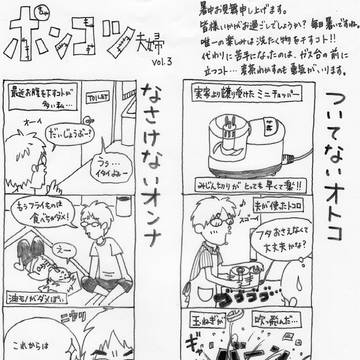 ポンコツ夫婦
vol.3
暑中お見舞申し上げます。
皆様いかがお過ごしでしょうか？毎日暑いですね。
唯一の楽しみは洗たく物を干すコト!!
代わりに苦手になったのは、ガス台の前に
立つコト…麦茶わかすのも勇気がいります。
ついてないオトコ
実家より譲り受けたミニチョッパー
みじん切りがとっても早くて楽!!
夫が使ったトコロ
スゴーイ
フタおさえなくて
大丈夫かな?
ゴゴゴゴ…
玉ねぎが
吹っ飛んだ…
なさけないオンナ
最近お腹を下すコトが
多い私…
TOILET
オーイ
だいじょうぶー?
うぅ…
イタイよぉー
もうフライものは
食べちゃダメ!
えー
油モノがダメっぽい
これからは